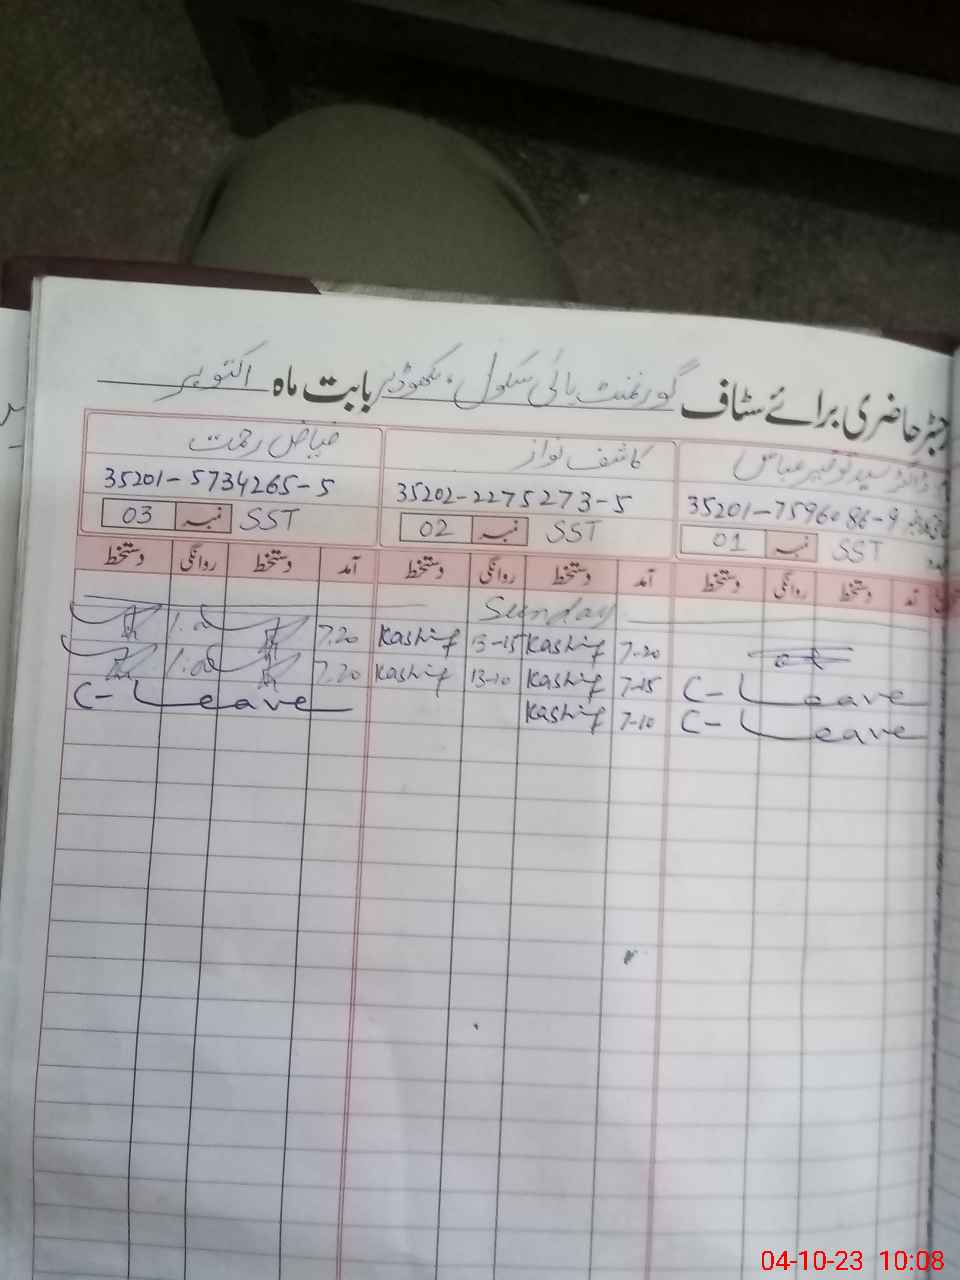 رجسٹر حاضری برائے سٹاف گورنمنٹ ہائی سکول، بھوڈیر بابت ماہ اکتوبر
ڈاکٹر سید توقیر عباس کاشف نواز فیاض رحمت
35201-7596086-9 35202-2275273-5 35201-5734265-5
SST نمبر 01 SST نمبر 02 SST نمبر 03
آمد دستخط روانگی دستخط آمد دستخط روانگی دستخط آمد دستخط روانگی دستخط
Sunday
7-20 Kashif 13-15 Kashif 7.20
C-Leave 7-15 Kashif 13-10 Kashif 7.20
C-Leave 7-10 Kashif C-Leave
04-10-23 10:08